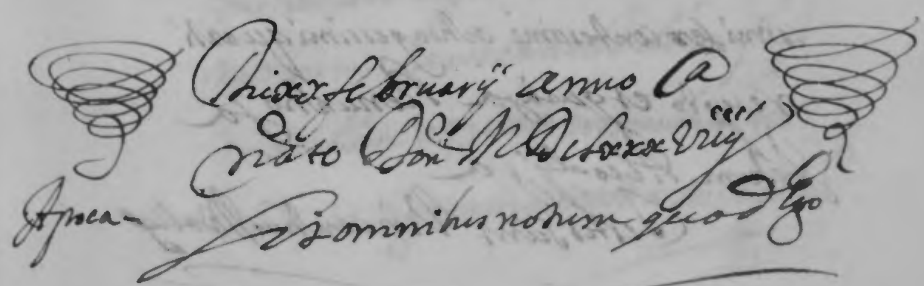 Die xx februarij anno a
nato Doni MDclxxxviiij
Apoca- Sit omnibus notum quod Ego